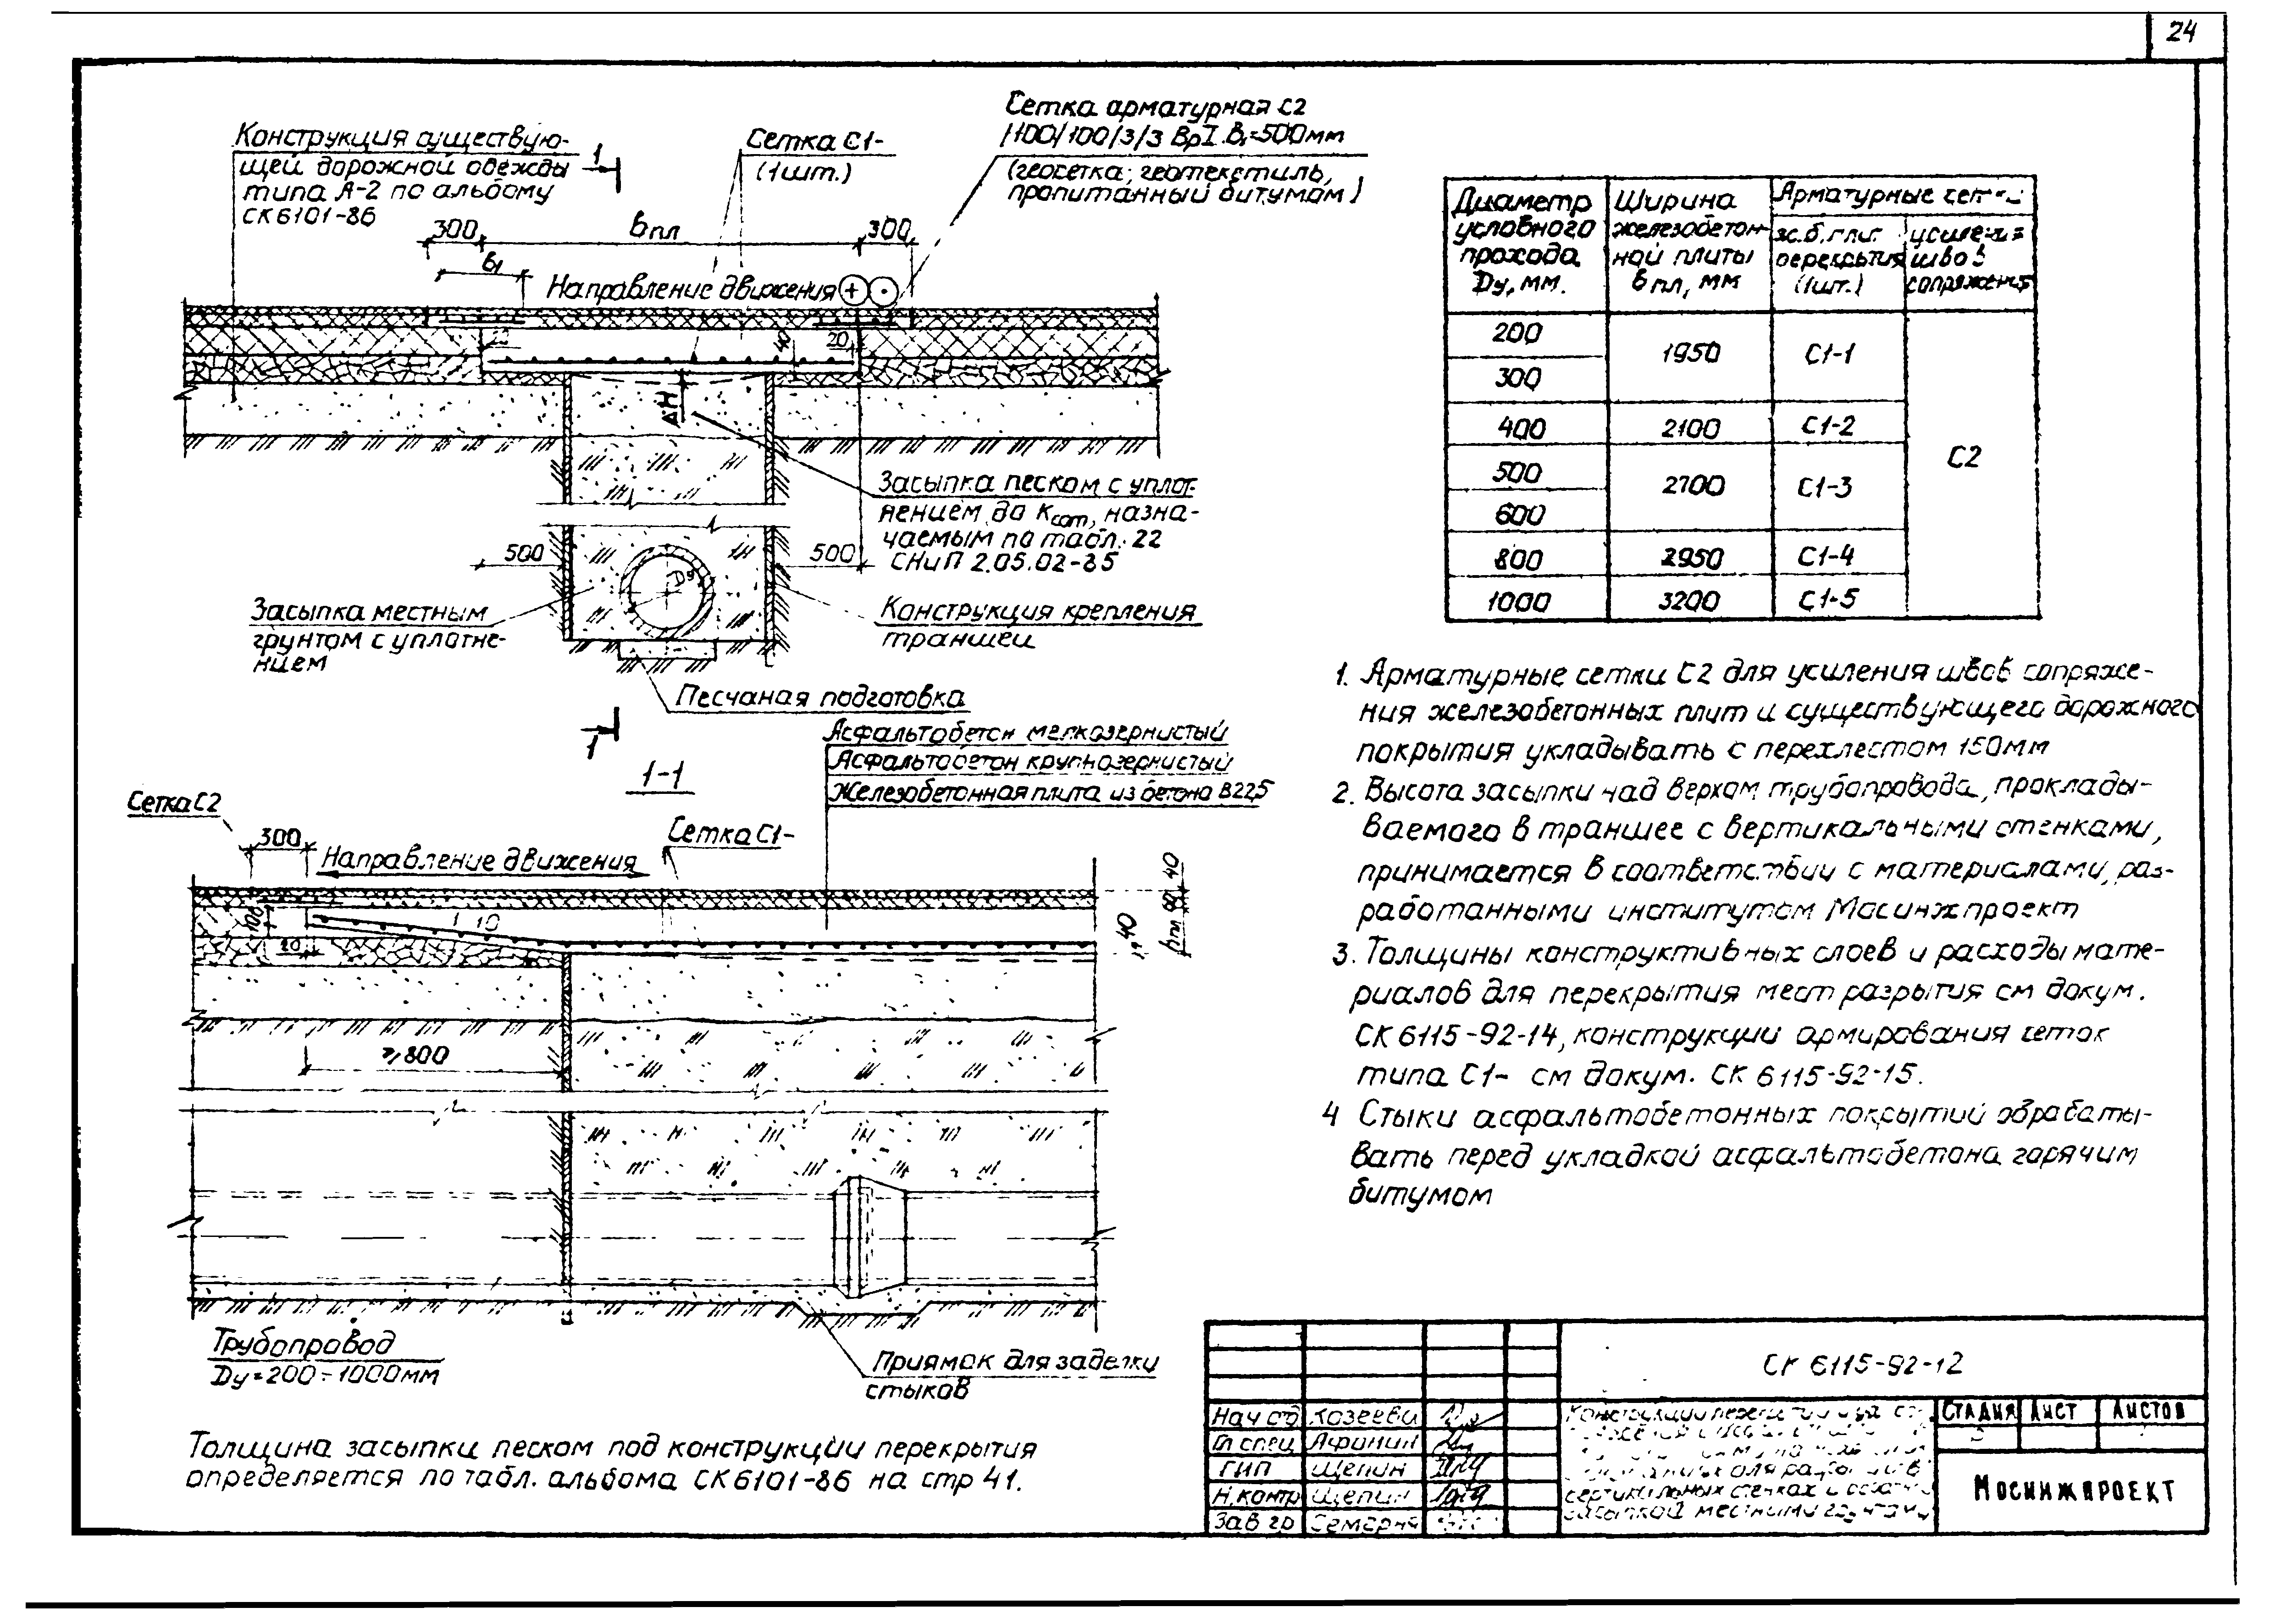 24
Конструкция существую-
щей дорожной одежды
типа А-2 по альбому
СК 6101-86
1
Сетка С1-
(1шт.)
Сетка арматурная С2
100/100/3/3 ВрI. В₁=500мм
(геосетка; геотекстиль,
пропитанный битумом)
300
Bпл
300
B₁
Направление движения
20
40
ΔН
Засыпка песком с уплот-
нением до Kсот, назна-
чаемым по табл. 22
СНиП 2.05.02-85
500
500
Dу
Засыпка местным
грунтом с уплотне-
нием
Конструкция крепления
траншеи
Песчаная подготовка
1
1-1
Асфальтобетон мелкозернистый
Асфальтобетон крупнозернистый
Железобетонная плита из бетона В22,5
Сетка С2
300
Направление движения
Сетка С1-
100
1:10
20
40
hпл
40
≥800
Трубопровод
Dу=200÷1000мм
Приямок для заделки
стыков
Толщина засыпки песком под конструкции перекрытия
определяется по табл. альбома СК 6101-86 на стр 41.
Диаметр условного прохода Dу, мм.
Ширина железобетон-ной плиты Bпл, мм
Арматурные
перекрытия (1шт.)
швов сопряжения
200
1950
С1-1
300
400
2100
С1-2
500
2700
С1-3
С2
600
800
2950
С1-4
1000
3200
С1-5
1. Арматурные сетки С2 для усиления швов сопряже-
ния железобетонных плит и существующего дорожного
покрытия укладывать с перехлестом 150мм
2. Высота засыпки над верхом трубопровода, проклады-
ваемого в траншее с вертикальными стенками,
принимается в соответствии с материалами, раз-
работанными институтом Мосинжпроект
3. Толщины конструктивных слоев и расходы мате-
риалов для перекрытия мест разрытия см докум.
СК 6115-92-14, конструкции армирования сеток
типа С1- см докум. СК 6115-92-15.
4 Стыки асфальтобетонных покрытий обрабаты-
вать перед укладкой асфальтобетона горячим
битумом
СК 6115-92-12
Нач отд Козеева
Гл спец Афонин
ГИП Щепин
Н.контр Щепин
Зав гр
Конструкции
засыпкой местными
СТАДИЯ ЛИСТ ЛИСТОВ
МОСИНЖПРОЕКТ